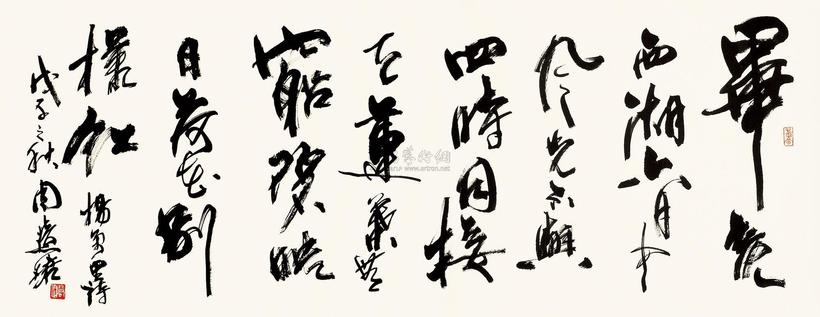 畢竟
西湖六月中
風光不與
四時同接
天蓮葉無
窮碧暎
日荷花别
樣紅 楊萬里詩
戊子之秋 周慧珺
www.artron.net